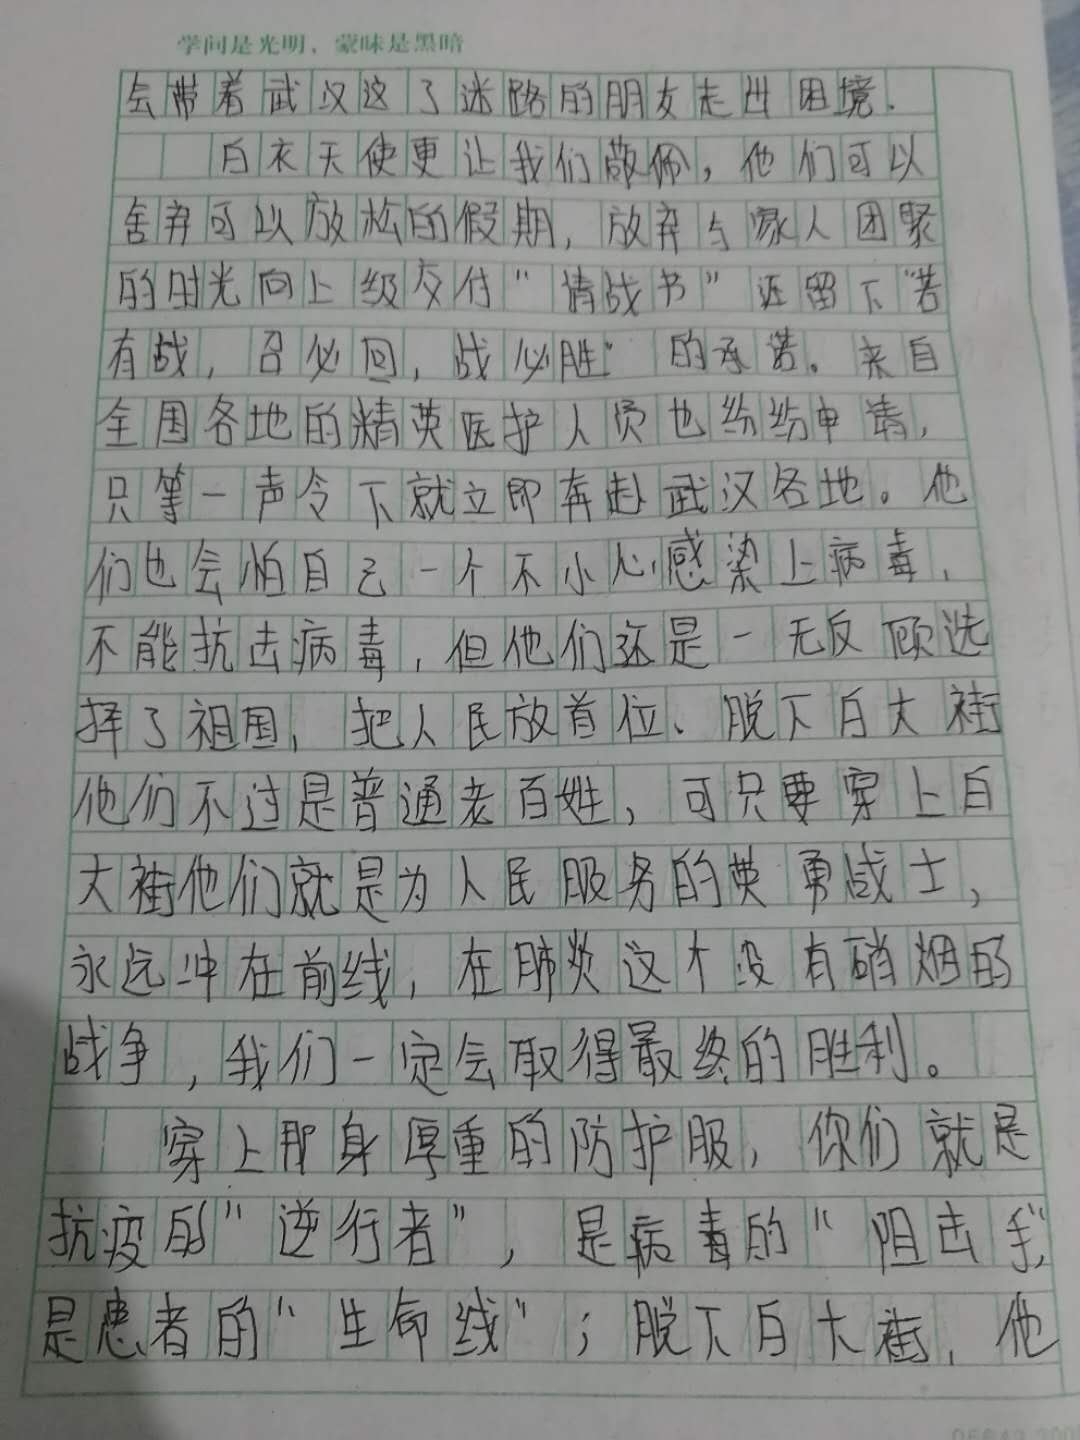 学问是光明，蒙昧是黑暗
会带着武汉这了迷路的朋友走出困境.
白衣天使更让我们敬佩，他们可以
舍弃可以放松的假期，放弃与家人团聚
的时光向上级交付“请战书”还留下“若
有战，召必回，战必胜”的承诺。来自
全国各地的精英医护人员也纷纷申请，
只等一声令下就立即奔赴武汉各地。他
们也会怕自己一个不小心感染上病毒，
不能抗击病毒，但他们还是一无反顾选
择了祖国，把人民放首位、脱下白大褂
他们不过是普通老百姓，可只要穿上白
大褂他们就是为人民服务的英勇战士，
永远冲在前线，在肺炎这个没有硝烟的
战争，我们一定会取得最终的胜利。
穿上那身厚重的防护服，你们就是
抗疫的“逆行者”，是病毒的“阻击手”，
是患者的“生命线”；脱下白大褂，他